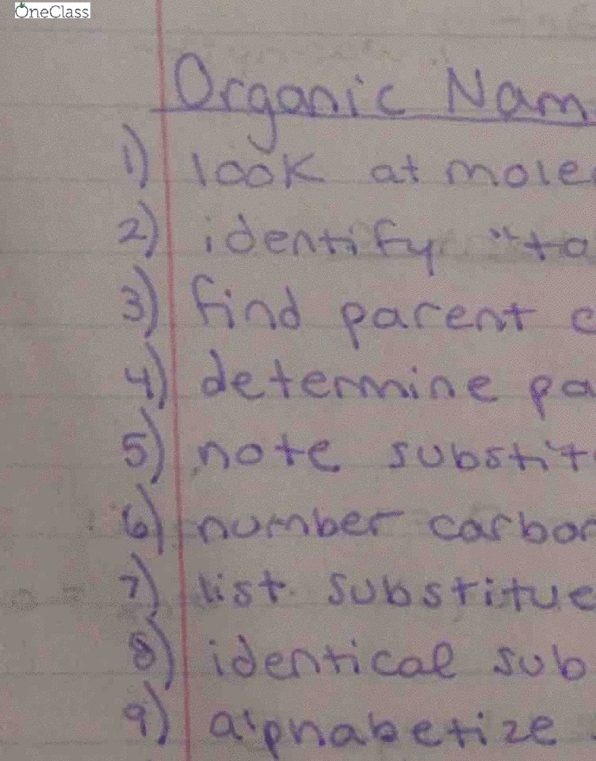 OneClass
Organic Nam
1) look at mole
2) identify "to
3) find parent c
4) determine pa
5) note substit
6) number carbon
7) list substitue
8) identical sub
9) alphabetize